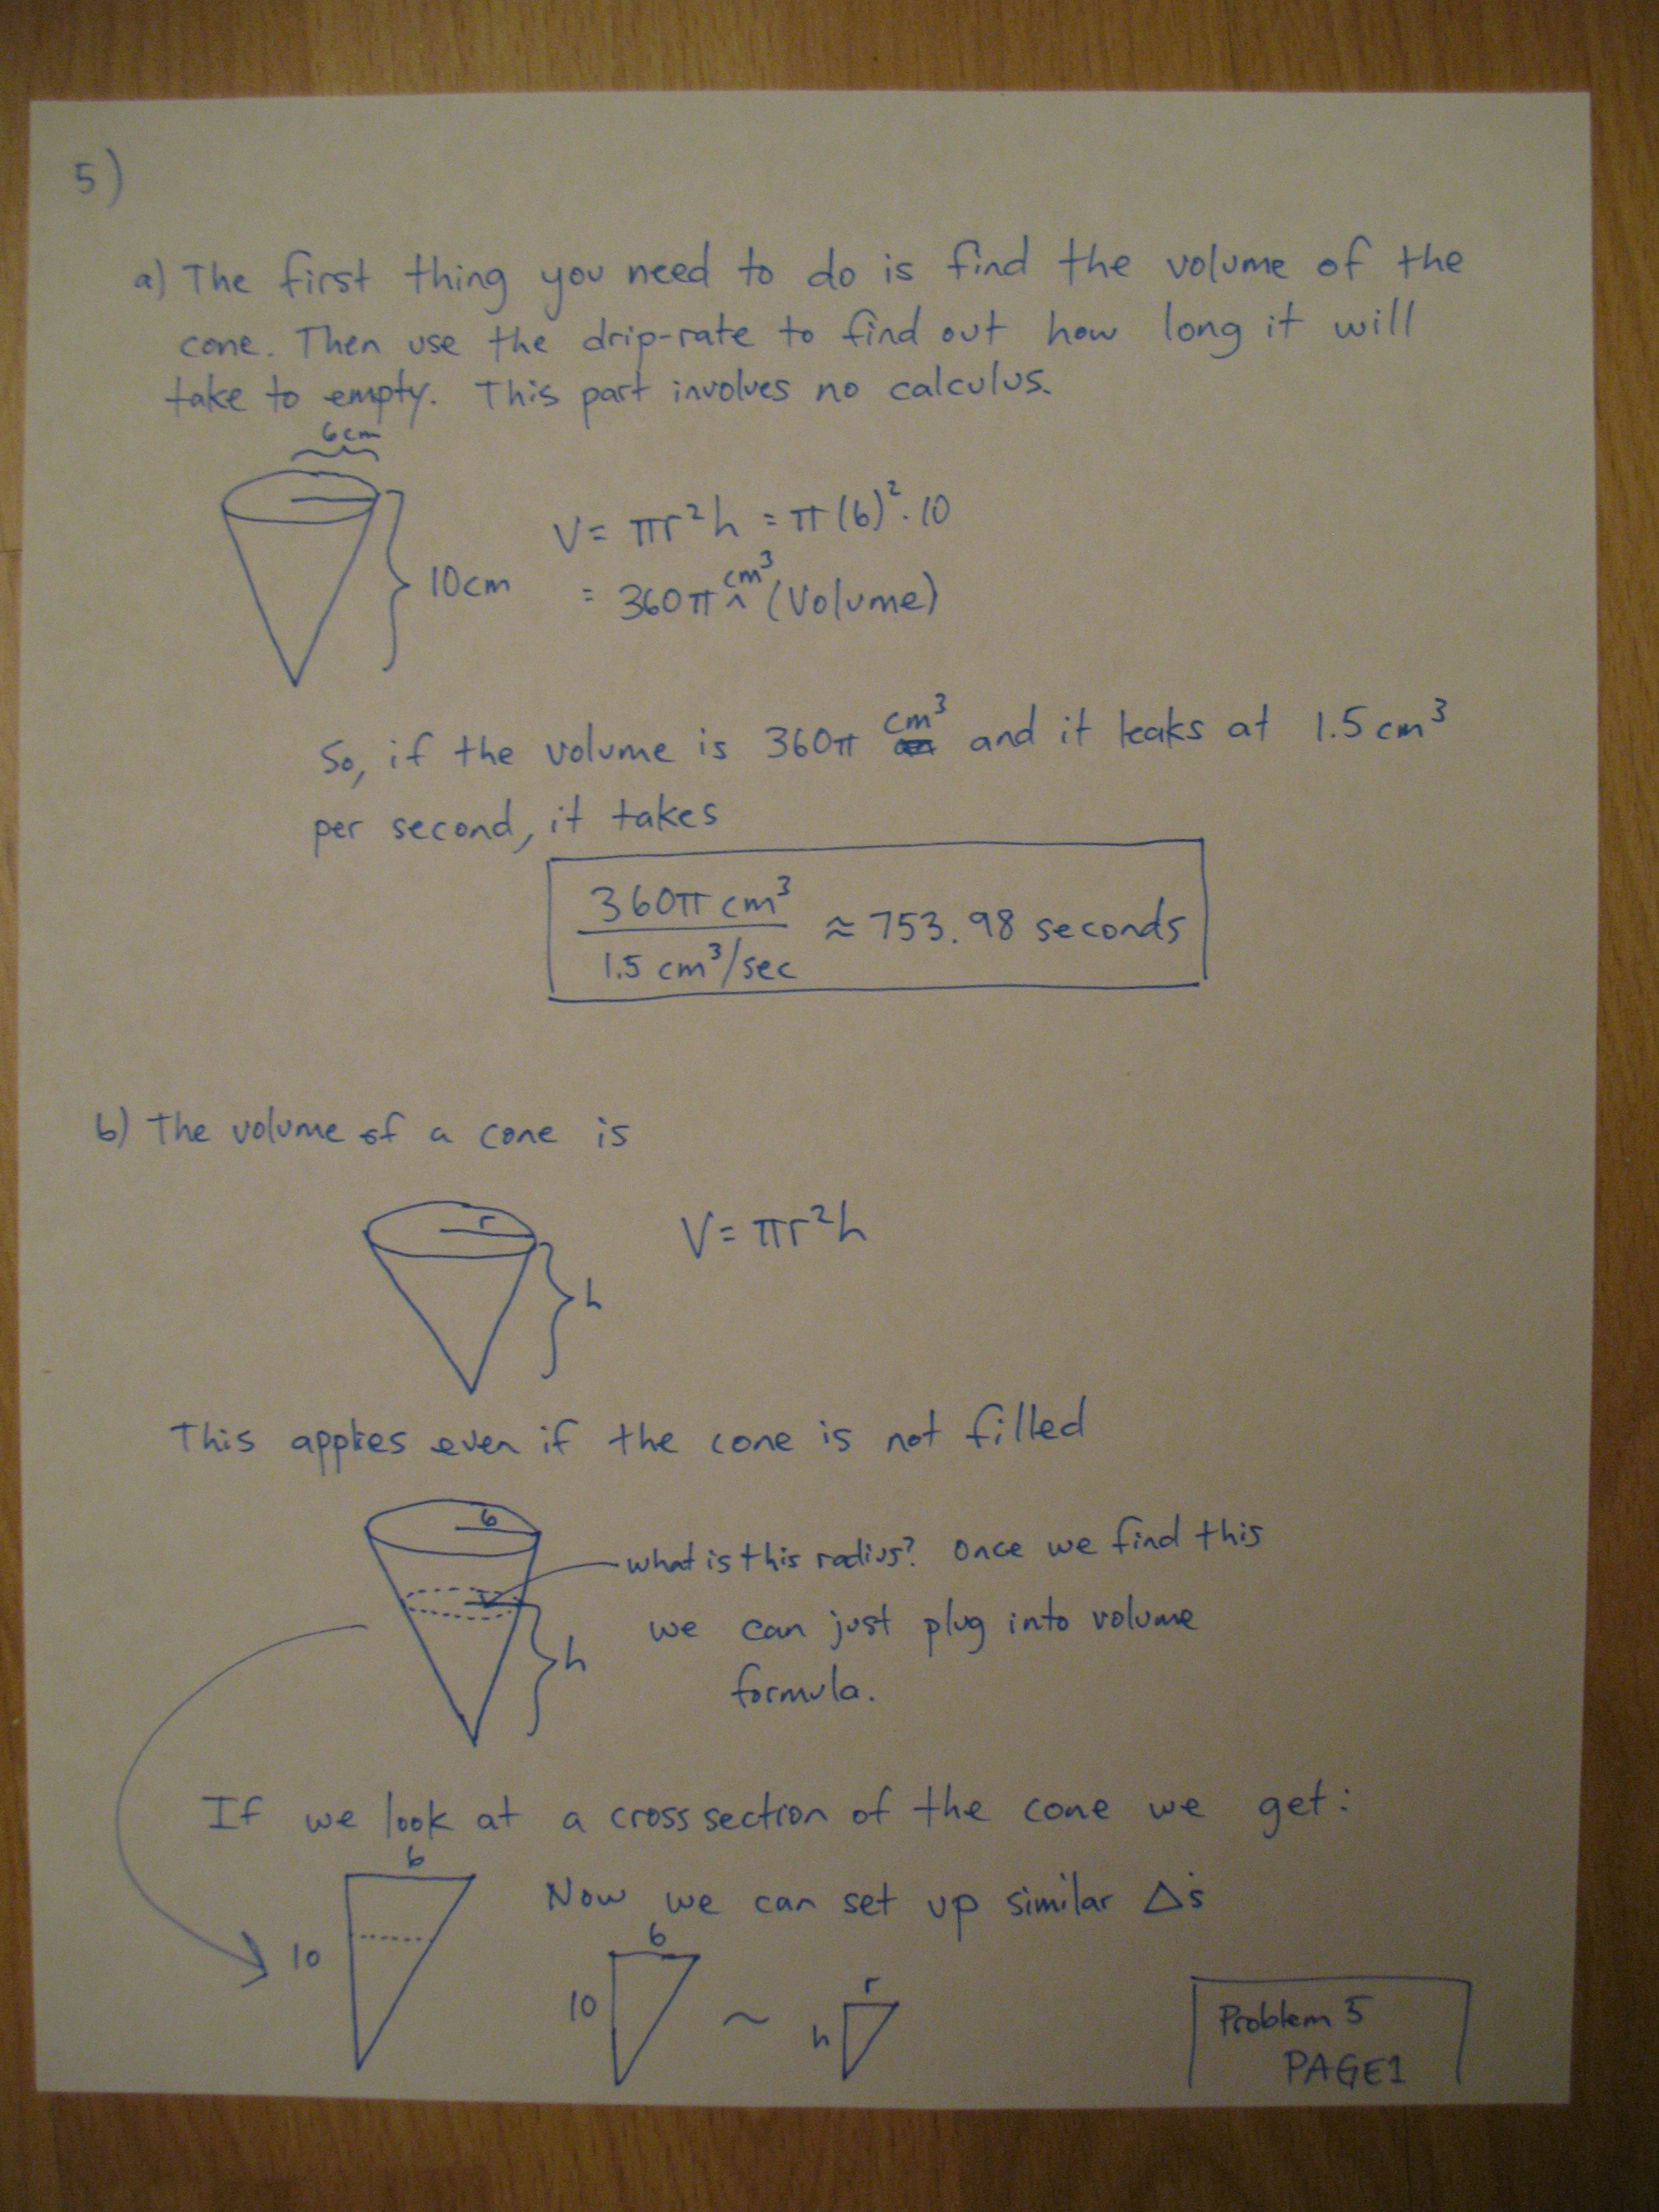 5)
a) The first thing you need to do is find the volume of the
cone. Then use the drip-rate to find out how long it will
take to empty. This part involves no calculus.
6cm
10cm
V = πr²h = π(6)²·10
= 360π cm³ (Volume)
So, if the volume is 360π cm³ and it leaks at 1.5 cm³
per second, it takes
360π cm³
1.5 cm³/sec
≈ 753.98 seconds
b) The volume of a cone is
r
h
V = πr²h
This applies even if the cone is not filled
6
what is this radius? Once we find this
r
we can just plug into volume
h
formula.
If we look at a cross section of the cone we get:
6
10
Now we can set up similar Δ's
6
10
~
r
h
Problem 5
PAGE 1